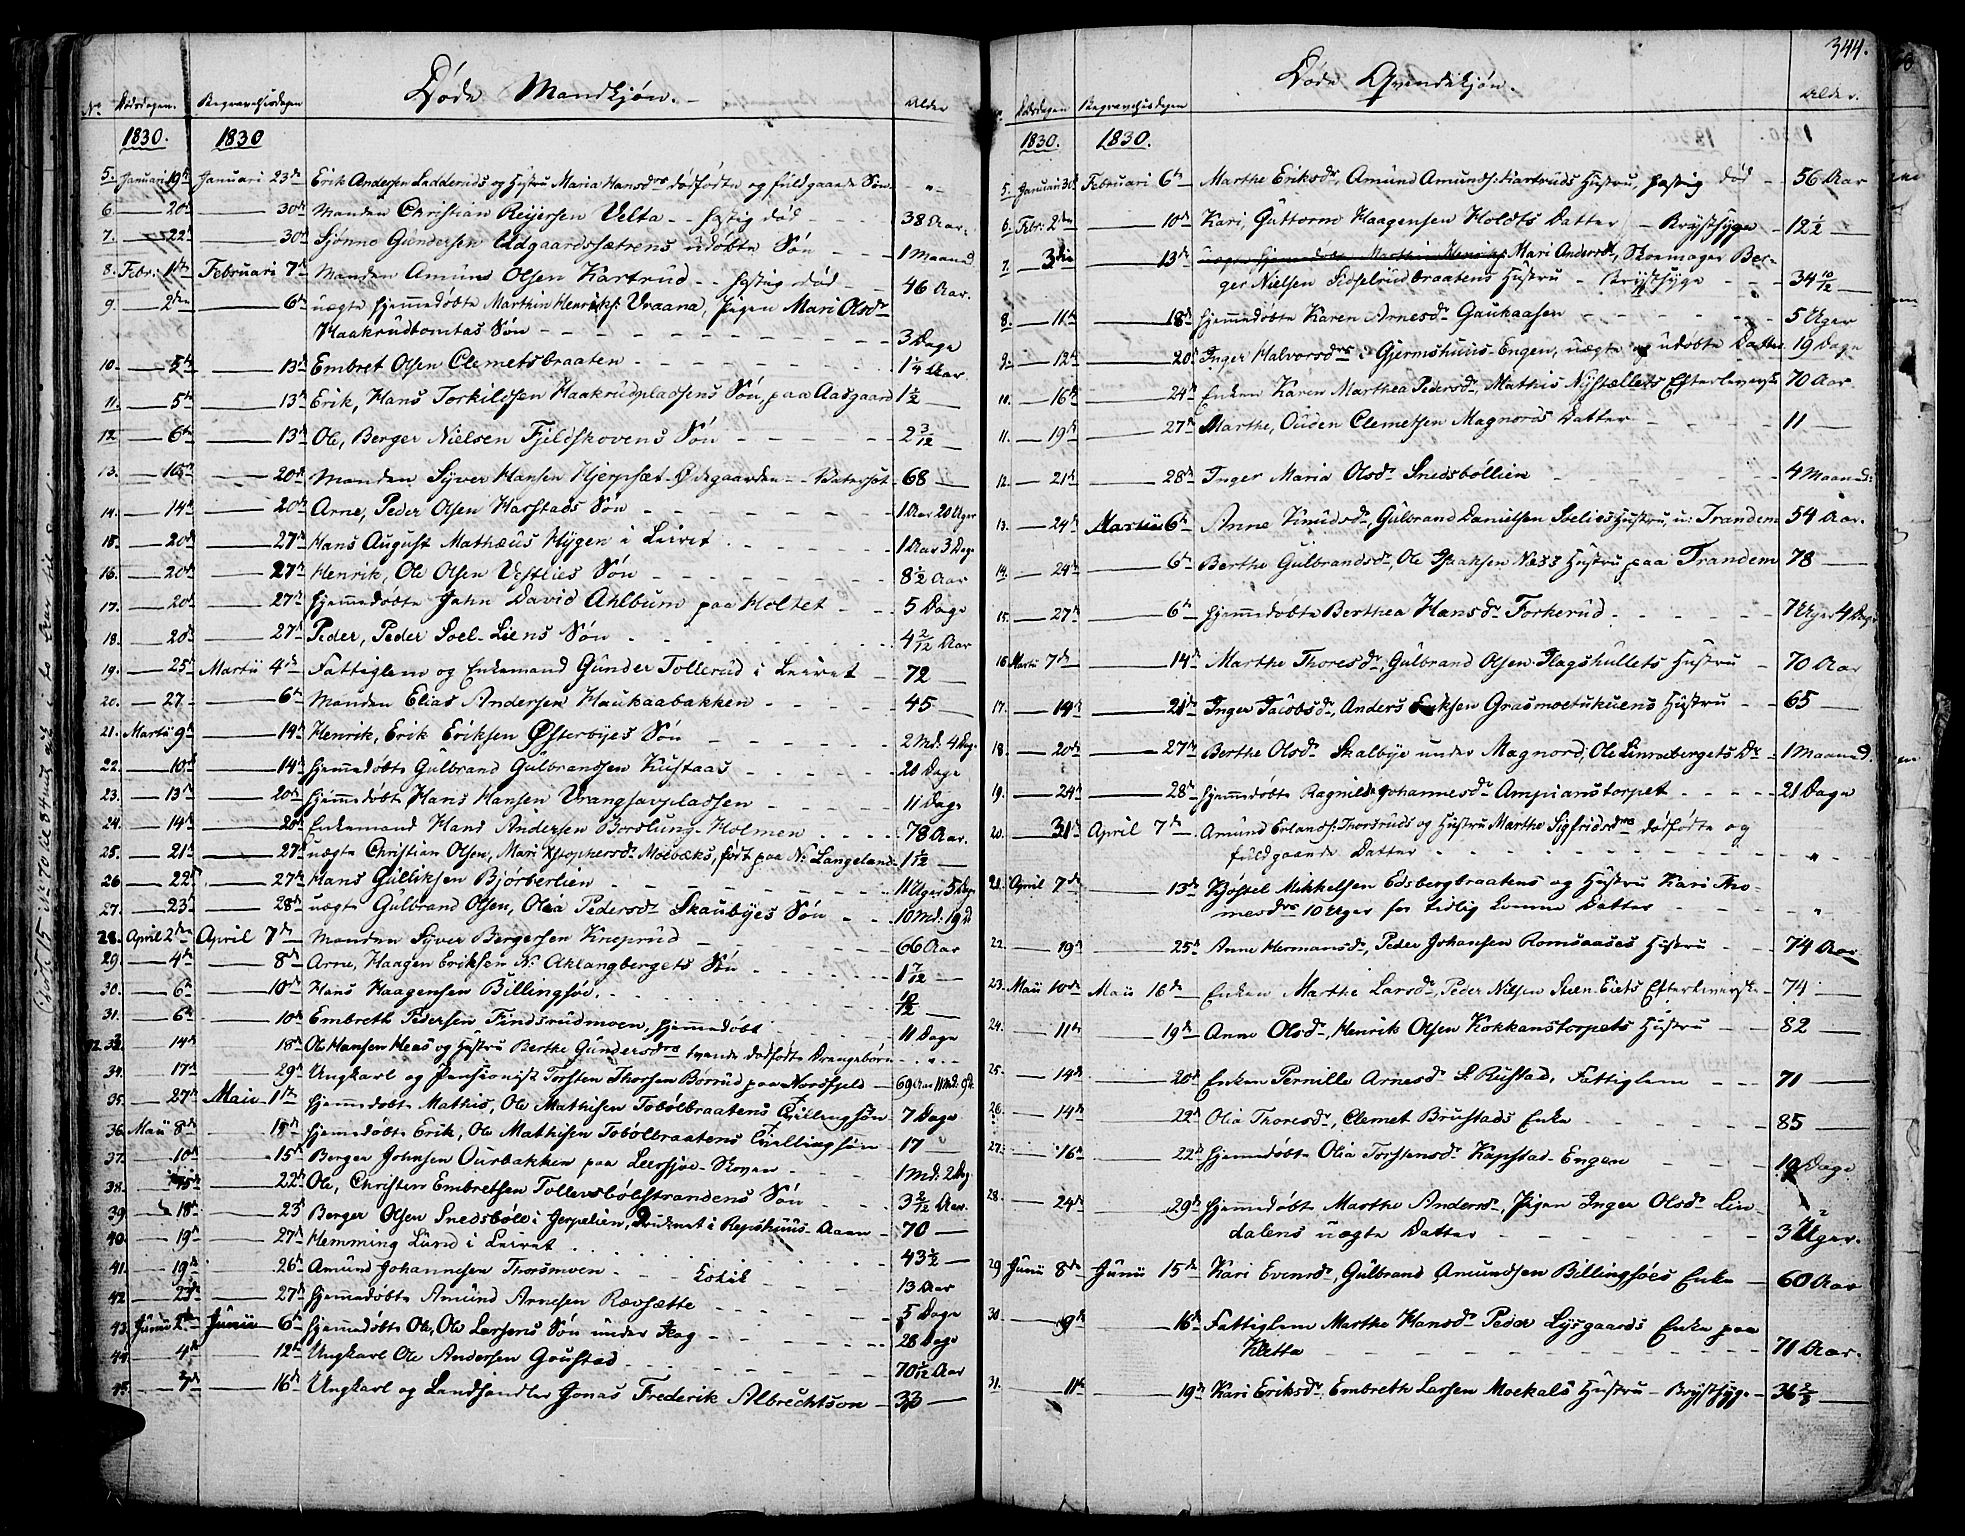 Døde Mandkjøn.
No Dødsdagen. Begravelsesdagen Alder
1830. 1830
5. Januari 19de Januari 23de Erik Andersen Ladderuds og Hustru Maria Hansdrs dødfødte og fuldgaaede Søn "
6. 20de 30de Manden Christian Reyersen Velta - hastig død 38 Aar.
7. 22de 30de Sjønne Gundersen Udgaardssætrens udøbte Søn 1 Maaned
8. Febr: 1ste Februari 7de Manden Amund Olsen Kartrud - hastig død 46 Aar.
9. 2den 6te uægte hjemmedøbte Marthin Henriks: Vraana, Pigen Mari Olsdr
Haakrudtomtas Søn 3 Dage
10. 5te 13de Embret Olsen Clemetsbraaten 1¼ Aar
11. 5te 13de Erik, Hans Torkildsen Haakrudpladsens Søn, paa Aasgaard 1½
12 6te 13de Ole, Berger Nielsen Fjeldskovens Søn 2 3/12
13. 16de 20de Manden Syver Hansen Hjerpsæt-Ødegaarden - Vatersot 68
14. 14de 20de Arne, Peder Olsen Harstads Søn 1 Aar 20 Uger
15. 20de 27de Hans August Mathæus Hygen i Leiret 1 Aar 3 Dage
16. 20de 27de Henrik, Ole Olsen Vestlies Søn 8½ Aar
17. 20de 27de hjemmedøbte John David Ahlbum paa Holtet 5 Dage
18. 20de 27de Peder, Peder Soel-Liens Søn 4 2/12 Aar
19. 25de Martii 4de Fattiglem og Enkemand Gunder Tollerud i Leiret 72
20. 27 6te Manden Elias Andersen Haukaabakken 45
21. Martii 9de 14de Henrik, Erik Eriksen Østerbyes Søn 2 Md. 4 Dag.
22. 10de 14de hjemmedøbte Gulbrand Gulbrandsen Kustaas 20 Dage
23. 13de 20de hjemmedøbte Hans Hansen Vrangsavpladsen 11 Dage
24. 14de 20de Enkemand Hans Andersen Borslung-Holmen 78 Aar.
25. 21de 27de uægte Christian Olsen, Mari Xstophersdr Moebæks, født paa N: Langeland 1 1/12
26 22de 27de Hans Gulliksen Bjørberlien 11 Uger 5 Dage
27. 23de 28de uægte Gulbrand Olsen, Olea Pedersdr Skaubyes Søn 10 Md: 19 D
28. April 2den April 7de Manden Syver Bergersen Kneprud 66 Aar
29. 4de 8de Arne, Haagen Eriksen N: Aklangbergets Søn 1 7/12
30. 6te 10de Hans Haagensen Billingsøe. 10/12
31. 6te 10de Embreth Pedersen Findsrudmoen, hjemmedøbt 11 Dage
32. 33. 14de 18de Ole Hansen Meas og Hustru Berthe Gundersdrs tvende dødfødte Drengebørn "
34. 17de 29de Ungkarl og Pensionist Torsten Thorsen Børrud paa Nordfjeld 69 Aar 11 Md.
35. 27de Maii 1ste hjemmedøbte Mathis, Ole Mathisen Tobølbraatens Tvillingsøn 7 Dage
36. Maii 8de 15de hjemmedøbte Erik, Ole Mathisen Tobølbraatens Tvillingsøn 17
37. 10de 15de Berger Johnsen Ourbakken paa Leersjøe-Skoven 1 Md: 2 Dag
38. 15de 22de Ole, Christen Embretsen Tollevsbølstrandens Søn 3 2/12 Aar.
39. 18de 23 Berger Olsen Snedsbøle i Jerpelien, Druknet i Repshuus-Aaen 70
40. 19de 27de Hemming Lund i Leiret 43½
41. 19de 26de Amund Johannesen Thorsmoen 13 Aar
42 23de 27de hjemmedøbte Amund Arnesen Rævsætte 5 Dage
43. Junii 2den Junii 6te hjemmedøbte Ole, Ole Larsens Søn under Skog 28 Dage
44. 4de 12te Ungkarl Ole Andersen Goustad 70 1/12 Aar
45. 7de 16de Ungkarl og Landhandler Jonas Frederik Albrechtson 33
344.
Døde Qvendekjøn.
Dødsdagen Begravelsesdagen Alder.
1830. 1830.
5. Januari 30te Februari 6te Marthe Eriksdr, Amund Amunds: Kartruds Hustru, hastig død 56 Aar
6. Febr: 2den 10de Kari, Guttorm Haagensen Holdts Datter - Brystsyge 12½
7. 3die 13de uægte hjemmedøbte Marthin Henriks Mari Andersdr, Skomager Ber-
ger Nielsen Sidselrudbraatens Hustru - Brystsyge 34 10/12
8. 11te 18de hjemmedøbte Karen Arnesdr Gaukaasen 5 Uger
9. 12te 20de Inger Halvorsdrs i Gjermshuus-Engen, uægte udøbte Datter 19 Dage
10. 16de 24de Enken Karen Marthea Pedersdr, Mathis Nystællets Efterleverske 70 Aar.
11. 19de 27de Marthe, Ouden Clemetsen Magnords Datter 11
12. 21de 28de Inger Maria Olsdr Snedsbøllien 4 Maaned:
13. 24de Martii 6te Anne Knudsdr, Gulbrand Danielsen Soelies Hustru, u: Trandem 54 Aar.
14. 24de 6te Berthe Gulbrandsdr, Ole Isaaksen Næss Hustru paa Trandem 78
15. 27de 6te hjemmedøbte Berthea Hansdr Torkerud 7 Uger 4 Dage
16 Martii 7de 14de Marthe Thoresdr, Gulbrand Olsen Hagshullets Hustru 70 Aar
17. 14de 21de Inger Jacobsdr, Anders Eriksen Grasmoetukuens Hustru 65
18. 20de 27de Berthe Olsdr Skalbye under Magnord, Ole Linnebergets Dr 1 Maaned.
19. 24de 28de hjemmedøbte Ragnild Johannesdr Ampianstorpet 21 Dage
20. 31de April 7de Amund Erlands: Thorsruds og Hustru Marthe Sigfridsdrs dødfødte og
fuldgaaede Datter "
21. April 7de 13de Kjøstel Mikkelsen Edsbergbraatens og Hustru Kari Tho-
mesdrs 10 Uger for tidlig komne Datter "
22. 19de 25de Anne Hermansdr, Peder Johansen Romsaases Hustru 74 Aar
23. Maii 10de Maii 16de Enken Marthe Larsdr, Peder Nilsen Steen-Eiets Efterleverske 74
24. 11te 19de Anne Olsdr, Henrik Olsen Kokkanstorpets Hustru 82
25. 14de 20de Enken Pernille Arnesdr S. Rustad, Fattiglem 71
26. 14de 22de Olia Thoresdr, Clemet Brustads Enke 85
27. 16de 22de hjemmedøbte Olia Torstensdr Kapstad-Engen 19 Dage
28. 24de 29de hjemmedøbte Marthe Andersdr, Pigen Inger Olsdr Lin-
dalens uægte Datter 3 Uger.
29 Junii 8de Junii 15de Kari Evensdr, Gulbrand Amundsen Billingsøes Enke 60 Aar
30. 9de 16de Fattiglem Marthe Hansdr Peder Lysgaards Enke paa
Kletta 71 Aar.
31. 11te 19de Kari Eriksdr Embreth Larsen Moekals Hustru - Brystsyge 36